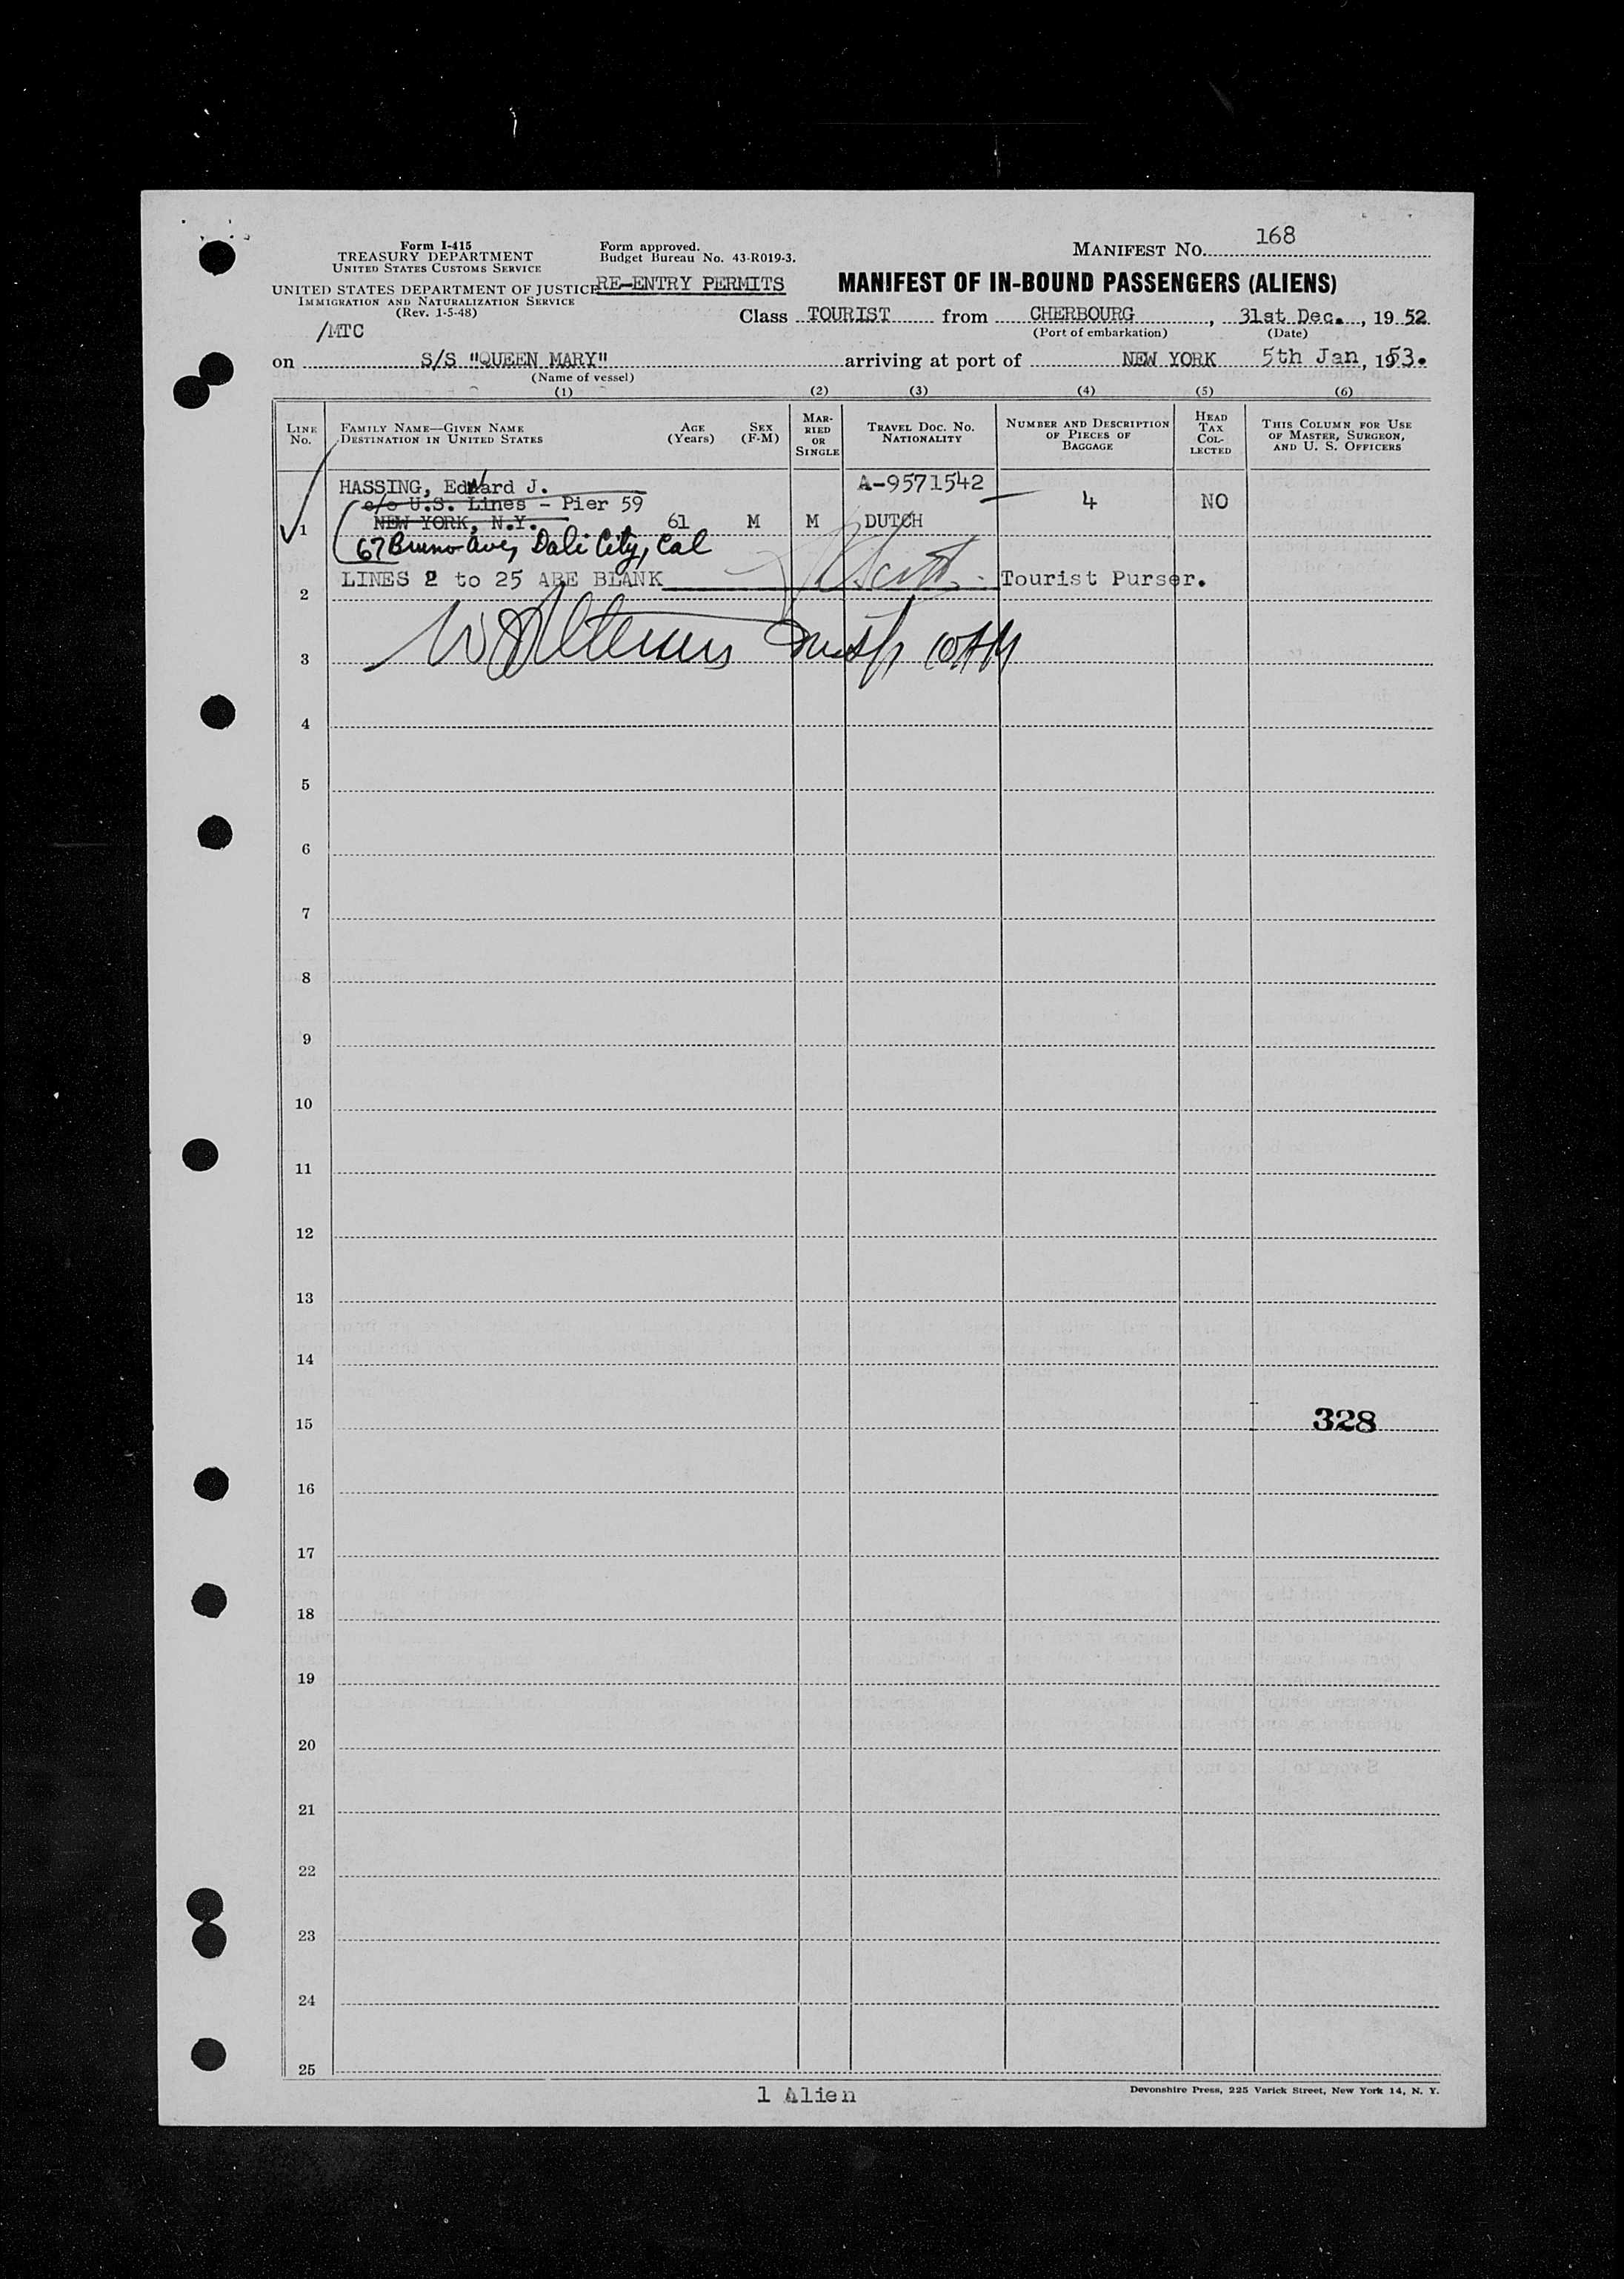 Form I-415
TREASURY DEPARTMENT
UNITED STATES CUSTOMS SERVICE
UNITED STATES DEPARTMENT OF JUSTICE
IMMIGRATION AND NATURALIZATION SERVICE
(Rev. 1-5-48)
/MTC
Form approved.
Budget Bureau No. 43-R019-3.
RE-ENTRY PERMITS
MANIFEST No. 168
MANIFEST OF IN-BOUND PASSENGERS (ALIENS)
Class TOURIST from CHERBOURG, 31st Dec., 1952
(Port of embarkation) (Date)
on S/S "QUEEN MARY" arriving at port of NEW YORK 5th Jan, 1953.
(Name of vessel)
(1) (2) (3) (4) (5) (6)
LINE No.
FAMILY NAME—GIVEN NAME
DESTINATION IN UNITED STATES
AGE (Years)
SEX (F-M)
MARRIED OR SINGLE
TRAVEL DOC. NO.
NATIONALITY
NUMBER AND DESCRIPTION OF PIECES OF BAGGAGE
HEAD TAX COLLECTED
THIS COLUMN FOR USE OF MASTER, SURGEON, AND U. S. OFFICERS
HASSING, Edward J. A-9571542
c/o U.S. Lines - Pier 59 4 NO
1 NEW YORK, N.Y. 61 M M DUTCH
67 Bruno Ave, Dali City, Cal
LINES 2 to 25 ARE BLANK Tourist Purser.
2
3
4
5
6
7
8
9
10
11
12
13
14
15 328
16
17
18
19
20
21
22
23
24
25
1 Alien
Devonshire Press, 225 Varick Street, New York 14, N. Y.